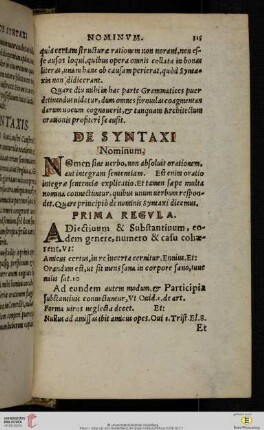 NOMINVM. 315
quia certam structuræ rationem non norant, neu es-
se ausos loqui, quibus opera omnis collata in bonas
literas, unam hanc ob causam perierat, quòd Synta-
xin non didicerant.
Quare diu mihi in hac parte Grammatices puer
detinendus uidetur, dum omnes formulas coagmentan
darum uocum cognouerit, & tanquam Architectum
orationis profiteri se ausit.
DE SYNTAXI
Nominum.
NOmen sine uerbo, non absoluit orationem,
aut integram sententiam. Est enim oratio
integræ sententiæ explicatio. Et tamen sæpe multa
nomina connectuntur, quibus unum uerbum respon-
det. Quare principiò de nominis syntaxi dicemus.
PRIMA REGVLA.
ADiectiuum & Substantiuum, eo-
dem genere, numero & casu cohæ-
rent. Vt:
Amicus certus, in re incerta cernitur. Ennius. Et:
Orandum est, ut sit mens sana in corpore sano, Iuue
nalis sat. 10
Ad eundem autem modum, & Participia
Substantiuis connectuntur, Vt Ouid. 1. de art.
Forma uiros neglecta decet. Et:
Nullus ad amissas ibit amicus opes. Oui 1. Trist. El. 8.
Et